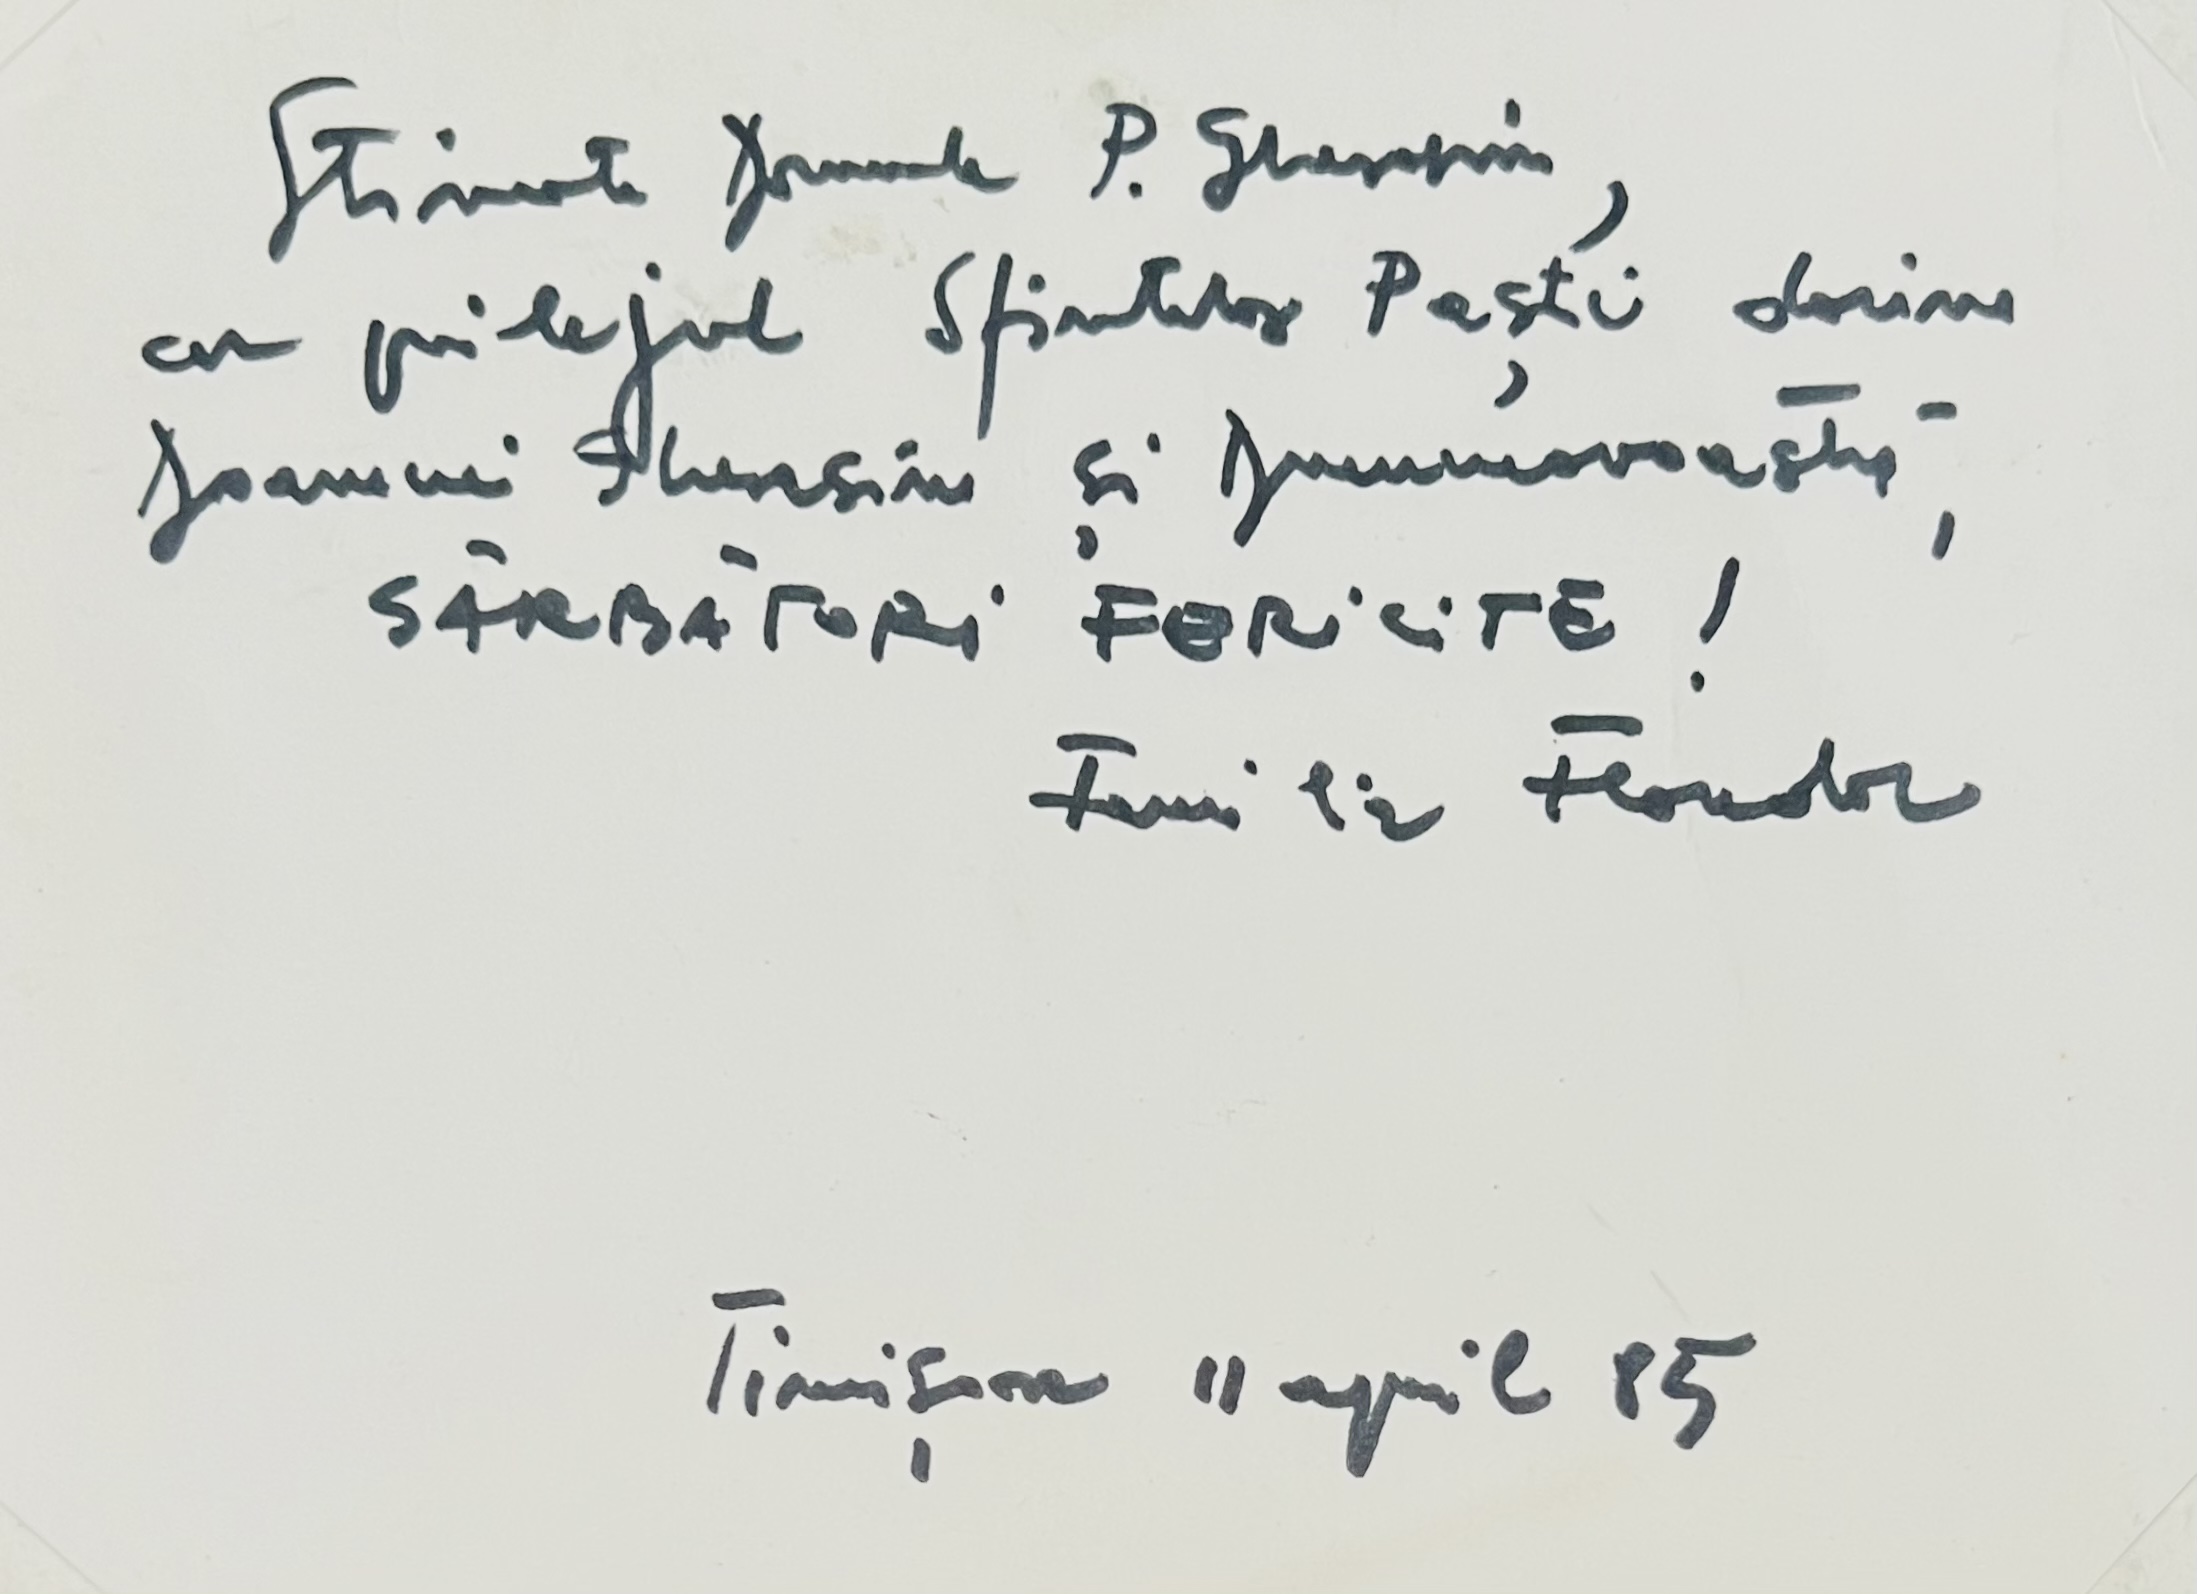 Stimate Domnule P. Gherasim,
cu prilejul Sfintelor Paști dorim
Doamnei Gherasim și Dumneavoastră,
SĂRBĂTORI FERICITE !
Familia Feodor
Timișoara 11 april 85